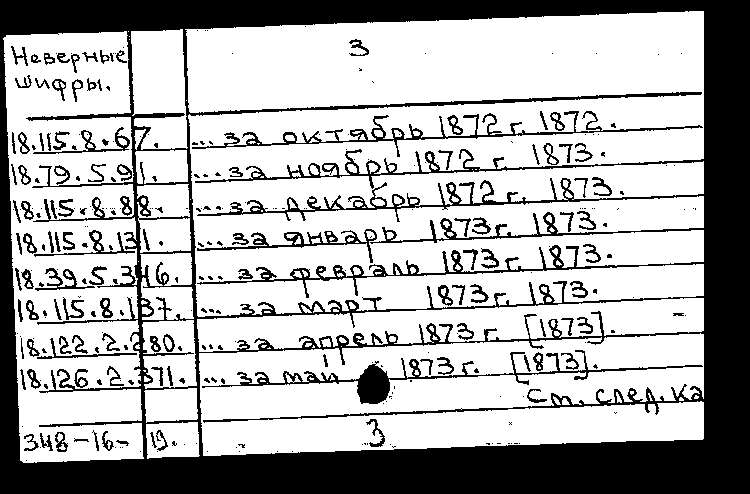 Неверные
шифры.
3
18.115.8.67. ... за октябрь 1872 г. 1872.
18.79.5.91. ... за ноябрь 1872 г. 1873.
18.115.8.88. ... за декабрь 1872 г. 1873.
18.115.8.131. ... за январь 1873 г. 1873.
18.39.5.346. ... за февраль 1873 г. 1873.
18.115.8.137. ... за март 1873 г. 1873.
18.122.2.280. ... за апрель 1873 г. [1873].
18.126.2.371. ... за май 1873 г. [1873].
См. след. ка
348-16- 19. 3